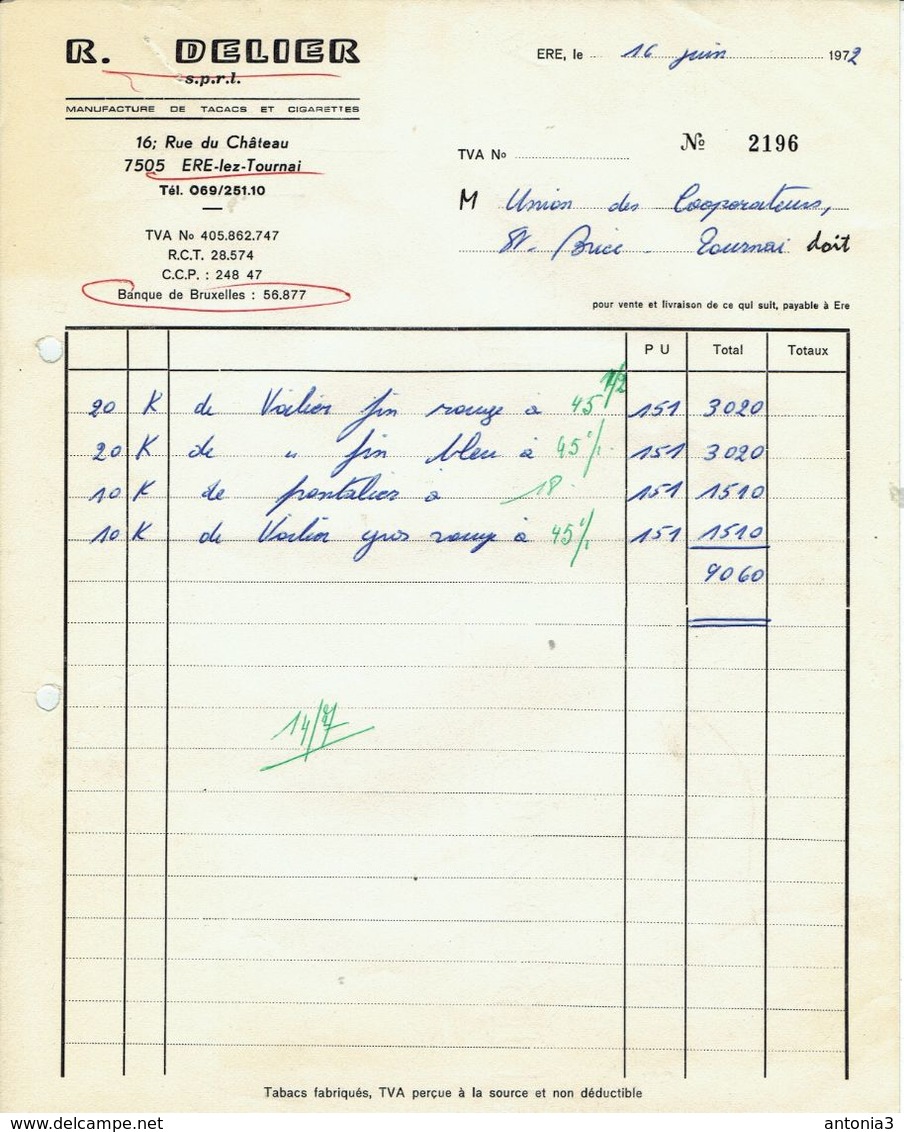 R. DELIER
s.p.r.l.
MANUFACTURE DE TACACS ET CIGARETTES
16; Rue du Château
7505 ERE-lez-Tournai
Tél. 069/251.10
TVA No 405.862.747
R.C.T. 28.574
C.C.P. : 248 47
Banque de Bruxelles : 56.877
ERE, le 16 juin 1972
No 2196
TVA No
M Union des Cooperateurs,
St. Brice - Tournai doit
pour vente et livraison de ce qui suit, payable à Ere
P U Total Totaux
20 K de Voilier fin rouge à 45 1/2 151 3020
20 K de " fin bleu à 45 151 3020
10 K de à 18 151 1510
10 K de Voilier gros rouge à 45 151 1510
9060
14/7
Tabacs fabriqués, TVA perçue à la source et non déductible
antonia3